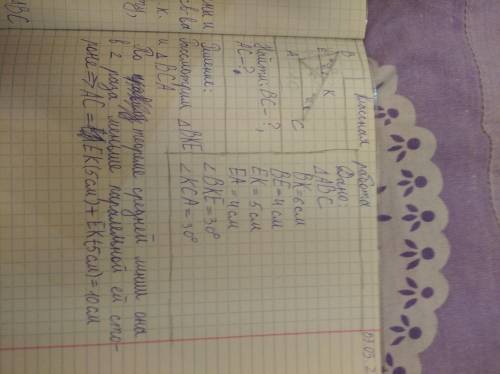 07.05.2
Классная работа
Дано:
△ABC
BK=6см
BE=4см
EK=5см
EA=4см
∠BKE=30°
∠KCA=30°
B
E
K
A
C
Найти: BC-?,
AC-?
Решение:
Рассмотрим △BKE
и △BCA
По теореме средней линии она
в 2 раза меньше паралельной ей сто-
роне ⇒ AC = EK(5см)+EK(5см)=10см
ABC